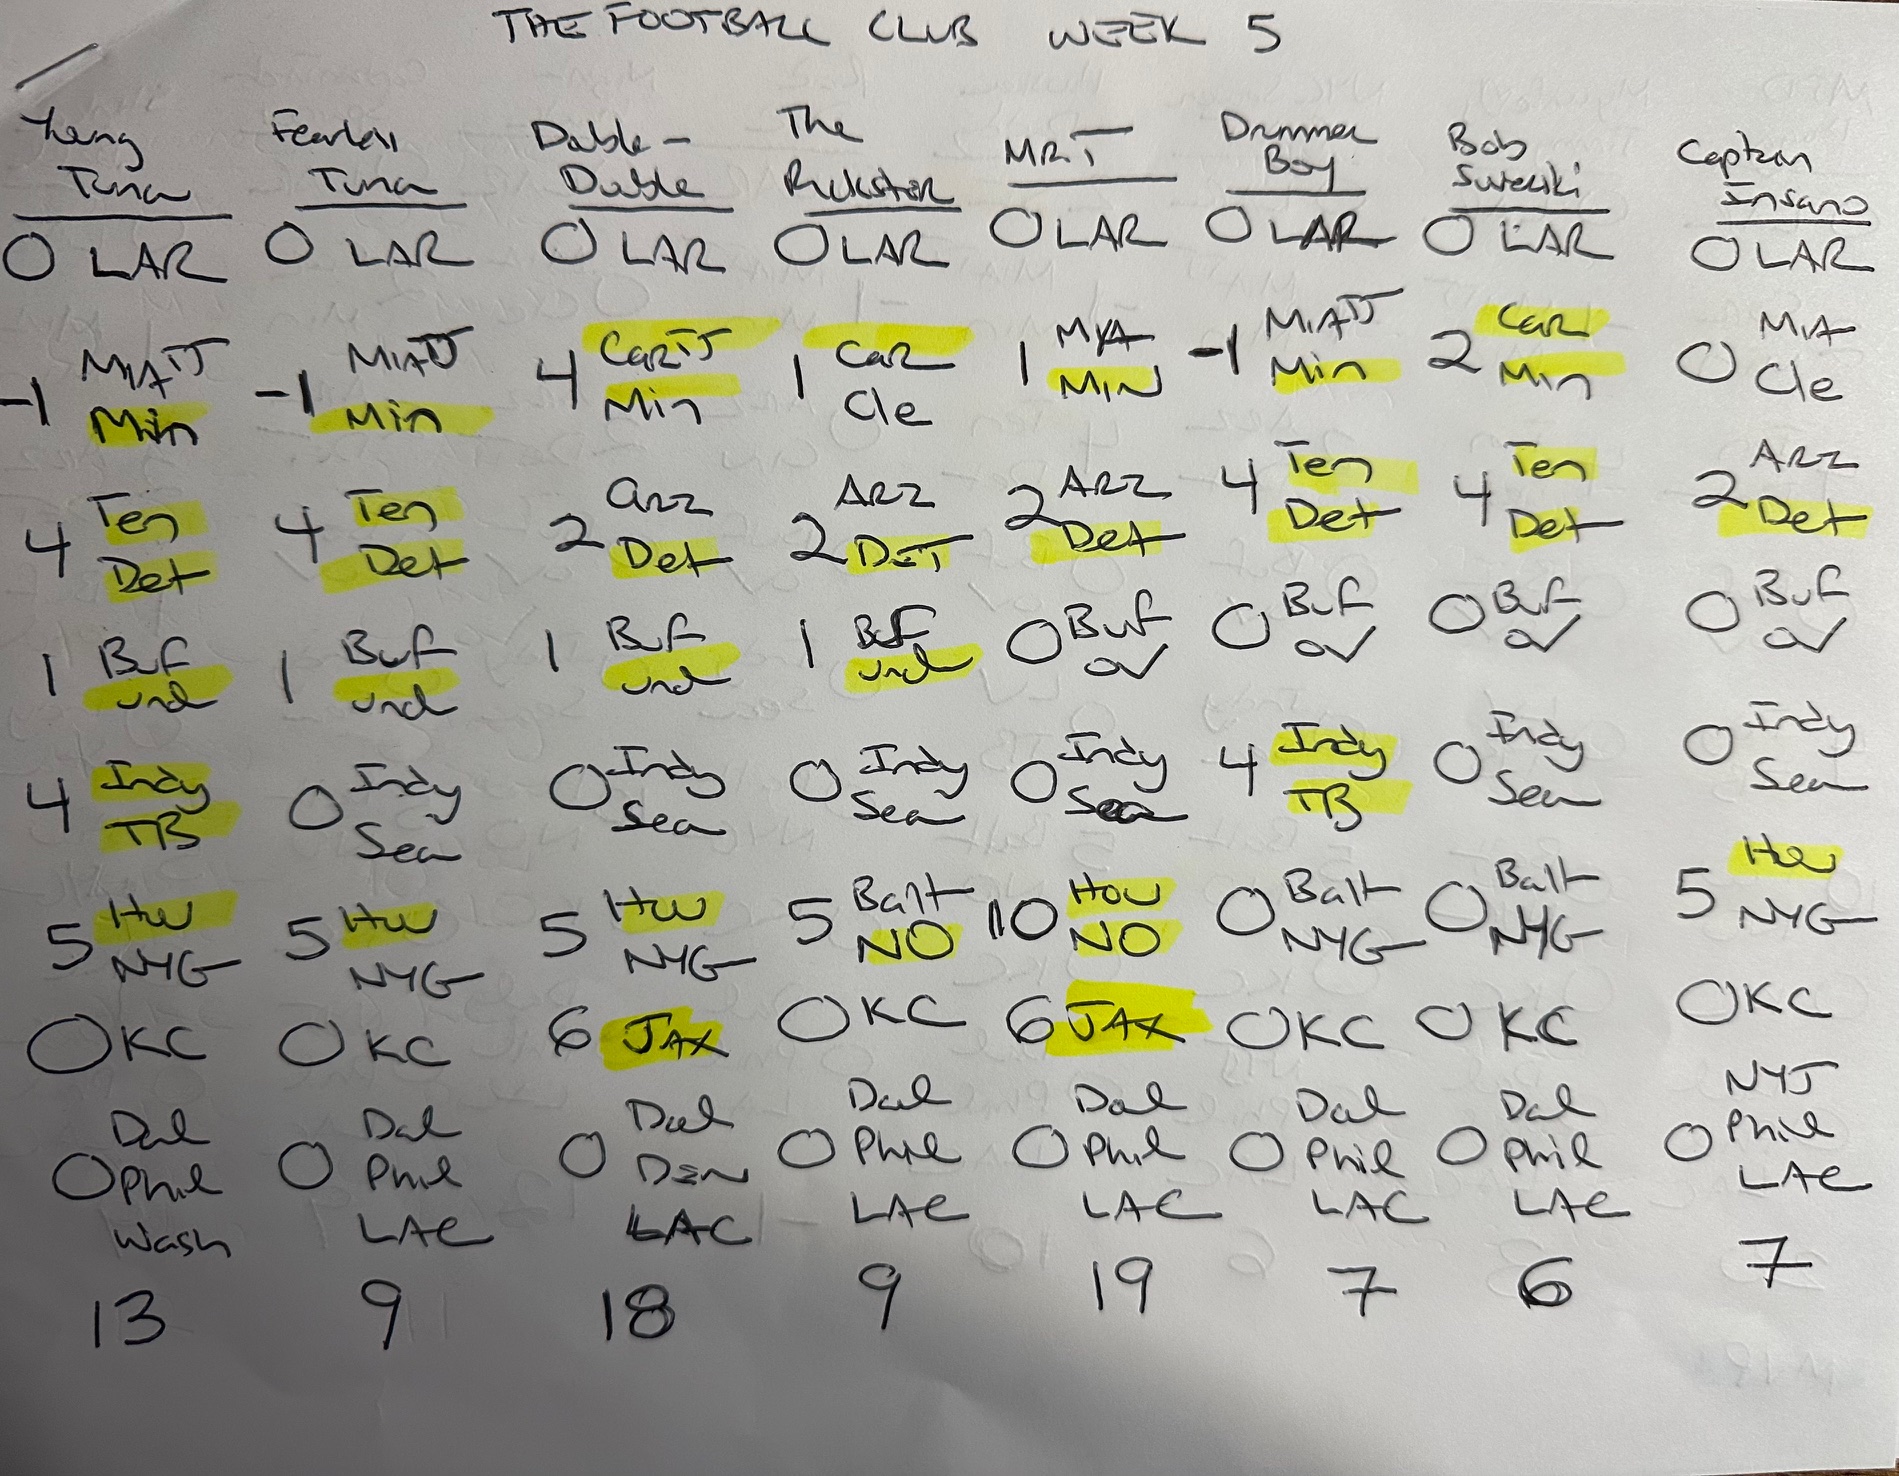 THE FOOTBALL CLUB WEEK 5
Young Fearless Double- The MR.T Drummer Bob Captain
Tuna Tuna Double Rickster Boy Insano
0 LAR 0 LAR 0 LAR 0 LAR 0 LAR 0 LAR 0 LAR 0 LAR
MIA TJ MIA TJ Car TJ Car MIA MIA TJ Car MIA
-1 -1 4 1 1 -1 2 0
Min Min Min Cle MIN Min Min Cle
Ten Ten arz ARZ ARZ Ten Ten ARZ
4 4 2 2 2 4 4 2
Det Det Det DET Det Det Det Det
Buf Buf Buf Buf Buf Buf Buf Buf
1 1 1 1 0 0 0 0
und und und und ov ov ov ov
Indy Indy Indy Indy Indy Indy Indy Indy
4 0 0 0 0 4 0 0
TB Sea Sea Sea Sea TB Sea Sea
Hou Hou Hou Balt Hou Balt Balt Hou
5 5 5 5 10 0 0 5
NYG NYG NYG NO NO NYG NYG NYG
0 KC 0 KC 6 JAX 0 KC 6 JAX 0 KC 0 KC 0 KC
Dal Dal Dal Dal Dal Dal Dal NYJ
0 Phil 0 Phil 0 Den 0 Phil 0 Phil 0 Phil 0 Phil 0 Phil
Wash LAC LAC LAC LAC LAC LAC LAC
13 9 18 9 19 7 6 7